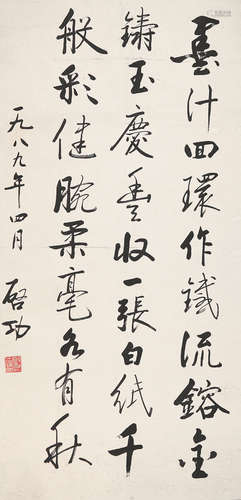 墨汁回環作鐵流鎔金
鑄玉慶豐收一張白紙千
般彩健腕柔毫各有秋
一九八九年四月
啓功